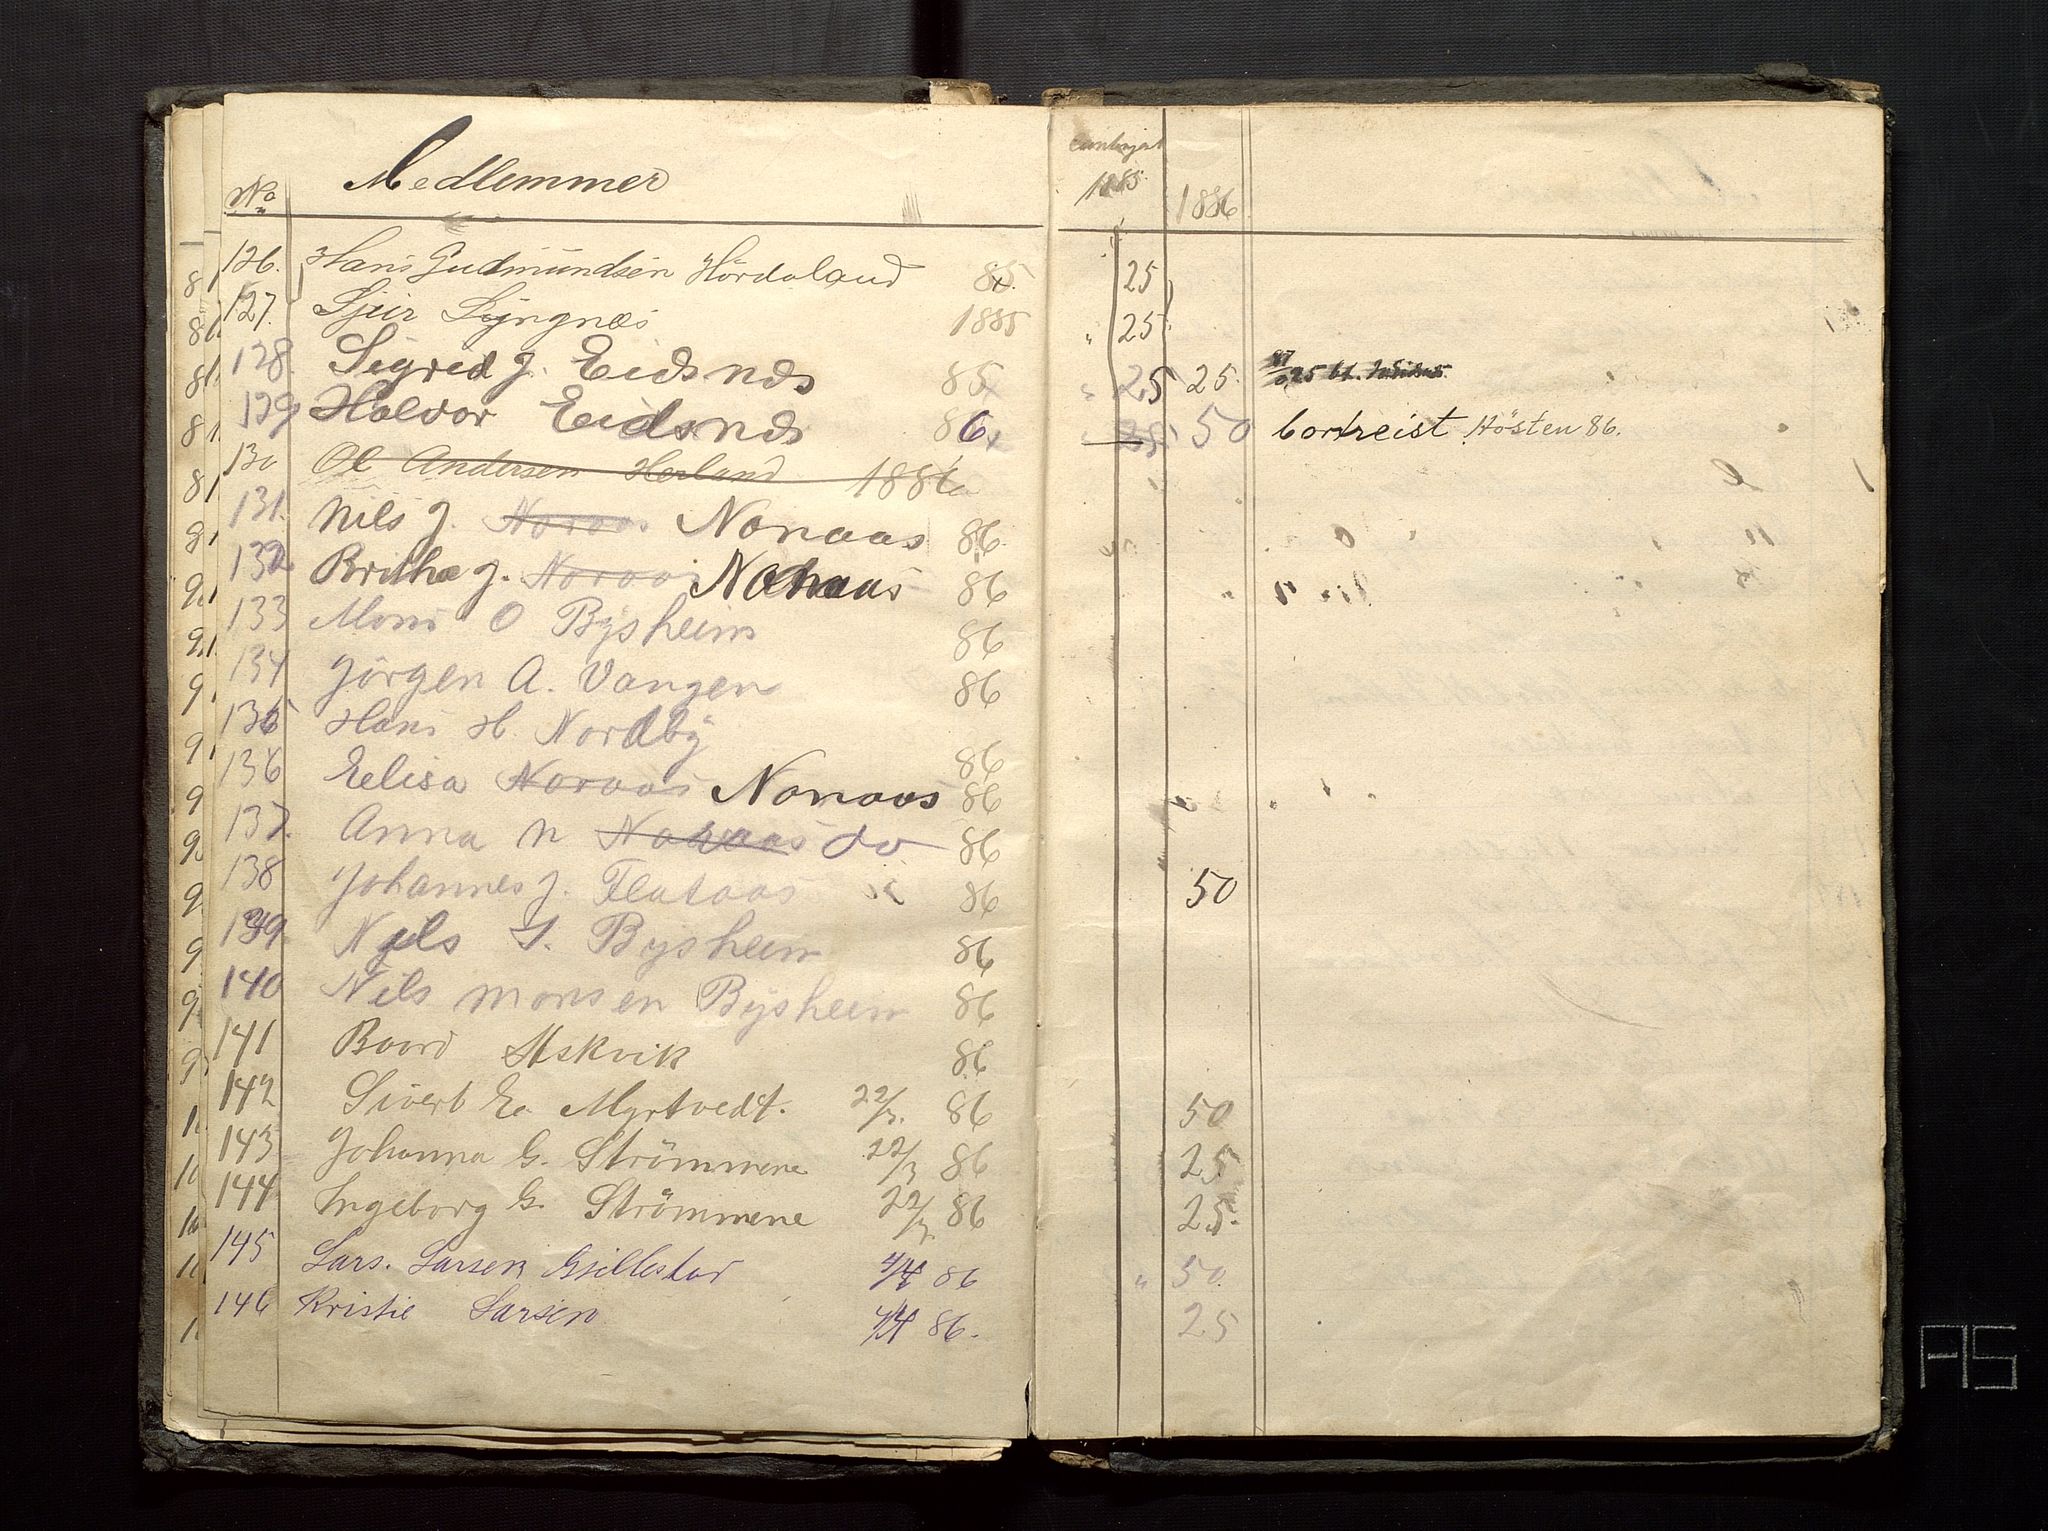 No Medlemmer 1885 1886
126. Hans Gudmundsen Hördaland 85 25
127. Sjur Lyngnæs 1885 " 25
128. Sigred J. Eidsnæs 85 " 25 25.
129 Halvor Eidsnæs 86 25 50 bortreist Hösten 86.
130 Ol Andersen Herland 1886
131. Nils J. Noraas Nonaas 86
132 Britha J. Noraas Nonaas 86
133 Mons O Bysheim 86
134 Jörgen A. Vangen 86
135 Hans H. Nordby 86
136 Eelisa Noraas Nonaas 86
137. Anna N Noraas do 86
138 Johannes J. Flataas 86 50
139. Nils S. Bysheim 86
140 Nils Monsen Bysheim 86
141 Baard Askvik 86
142 Sivert E. Myrtvedt. 22/3. 86 50
143 Johanna G. Strömmene 22/3 86 25
144 Ingeborg G. Strömmene 22/3 86 25.
145 Lars. Larsen Gjillestad 4/4 86 " 50.
146 Kristie Larsen 4/4 86. 25
AS